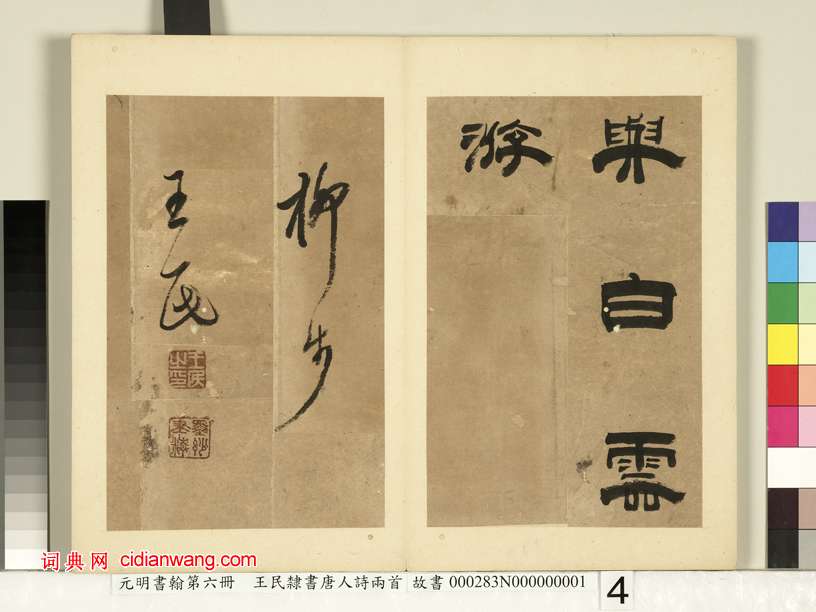 與白雲
游
柳步
王民
王民之印
词典网 cidianwang.com
元明書翰第六冊 王民隸書唐人詩兩首 故書 000283N000000001
4